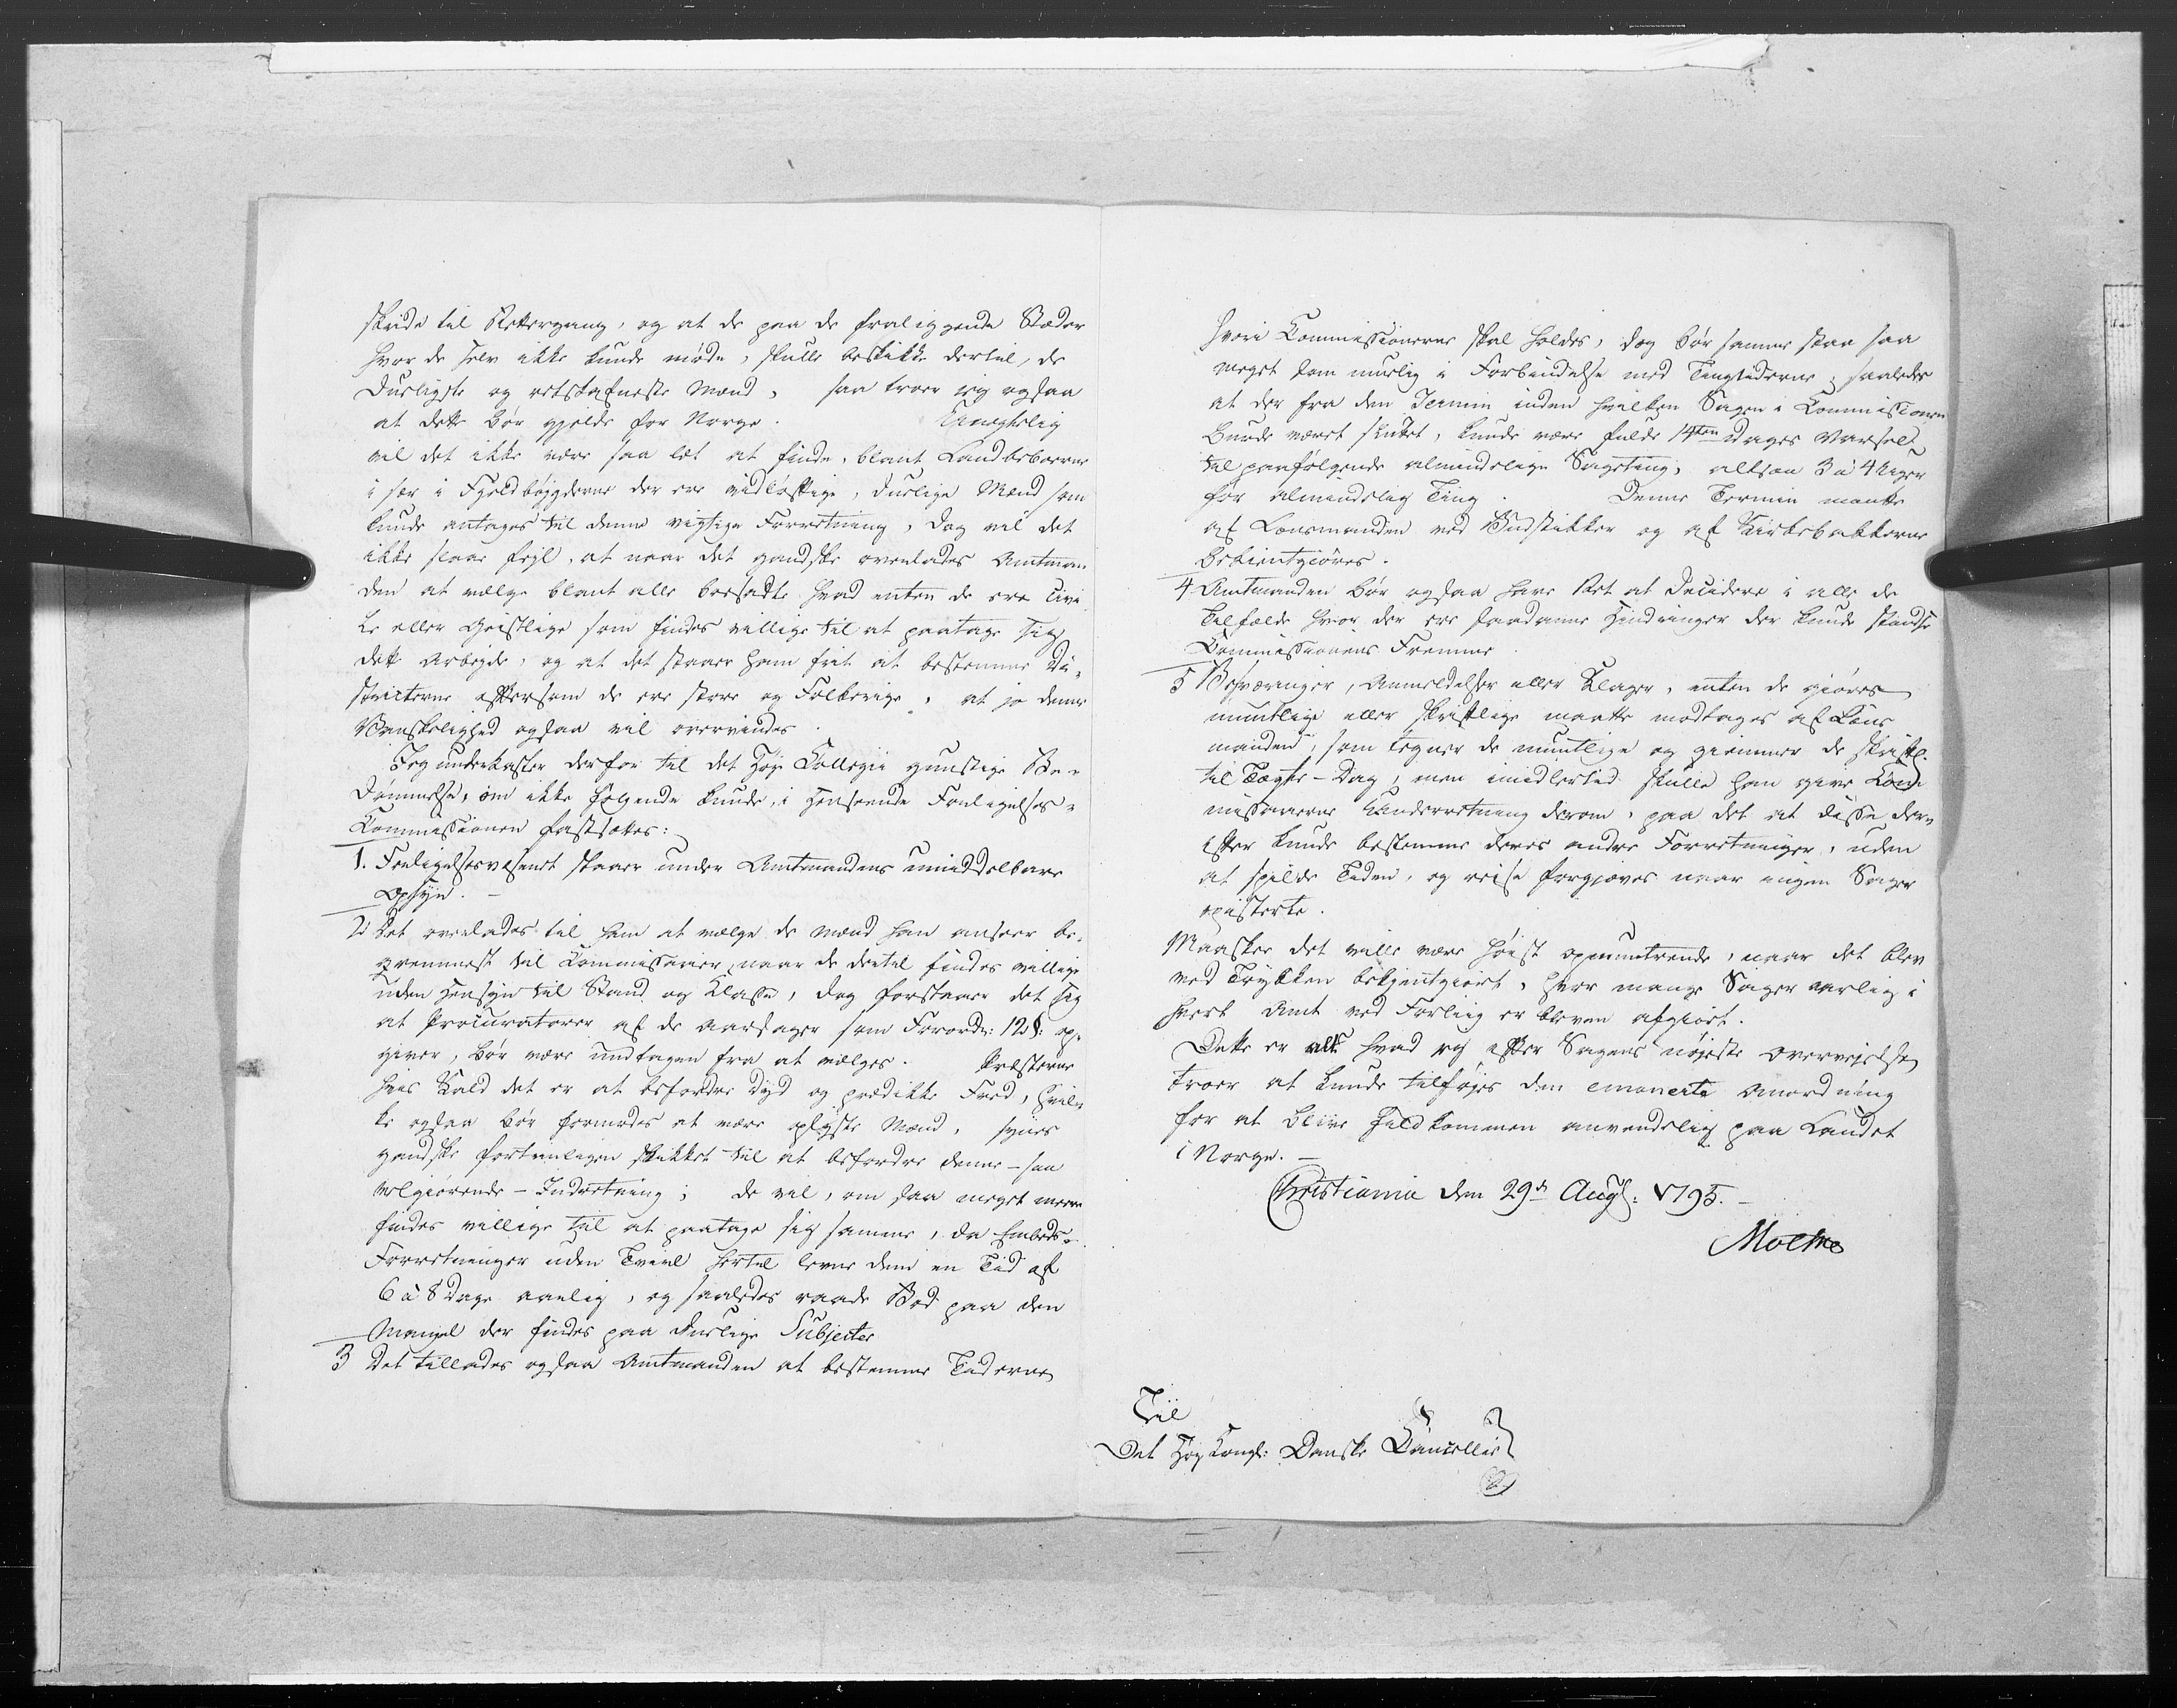 skride til Rettergang, og at de paa de fraliggende Stæder
hvor de selv ikke kunde møde, skulle beskikke dertil, de
dueligste og retskafneste Mænd, saa troer jeg ogsaa
at dette bør gjelde for Norge. Unegtelig
vil det ikke være saa let at finde, blant Landbeboerne
i sær i Fjeldbøygderne der ere vidløftige, duelige Mænd som
kunde antages til denne vigtige Forretning, dog vil det
ikke slaae fejl, at naar det gandske overlades Amtman
den at vælge blant alle boesadte hvad enten de ere Civi
le eller Geistlige som findes villige til at paatage sig
dette Arbejde, og at det staaer ham frit at bestemme Di-
stricterne eftersom de ere store og Folkerige, at jo denne
Vanskelighed ogsaa vil overvindes.
Jeg underkaster derfor til det Høye Collegii gunstige Be-
dømmelse, om ikke følgende kunde, i Henseende Forligelses-
Commissionen fastsættes:
1. Forligelsesvæsenet staaer under Amtmandens umiddelbare
Opsyn. -
2. Det overlades til ham at vælge de Mænd han ansees be-
qvemmest til Commissairer, naar de dertil findes villige
uden Hensyn til Stand og Klasse, dog forstaaer det sig
at Procuratorer af de Aarsager som Forordn: 12 §: op-
giver, bør være undtagen fra at vælges. Præsterne
hvis Kald det er at befordre Dyd og prædikke Fred, hvil-
ke ogsaa bør formodes at være oplyste Mænd, synes
gandske fortrinligen skikket til at befordre denne - saa
velgiørende - Indretning; de vil, om saa meget meere
findes villige til at paatage sig samme, da Embeds-
Forretninger uden Tvivl hertil levne dem en Tid af
6 à 8 Dage aarlig, og saaledes raade Bod paa den
Mangel der findes paa duelige Subjecter
3 Det tillades ogsaa Amtmanden at bestemme Tiderne
hvori Commissionerne skal holdes, dog bør samme staae saa
meget som muelig i Forbindelse med Tingtiderne, saaledes
at der fra den Termin inden hvilken Sagen i Commissionen
burde været sluttet, kunde være fulde 14ten Dages Varsel
til paafølgende almindelige Sageting, altsaa 3 à 4 Uger
før almindelig Ting. Denne Termin maatte
af Lensmanden ved Budstikker og af Kirkebakkerne
bekientgiøres.
4 Amtmanden bør ogsaa have Ret at decidere i alle de
Tilfælde hvor der ere saadanne Hindringer der kunde standse
Commissionens Fremme.
5 Besværinger, Anmeldelser eller Klager, enten de giøres
mundtlige eller skriftlige maatte modtages af Lens
manden, som tegner de mundtlige og giemmer de skriftl.
til Tægte-Dag, men imidlertid skulle han give Com-
missairerne Underretning derom, paa det at disse der-
efter kunde bestemme deres andre Forretninger, uden
at spilde Tiden, og reise forgjæves naar ingen Sager
existerte.
Maaskee det ville være høist opmuntrende, naar det blev
ved Trykken bekjentgiort, hvor mange Sager aarlig i
hvert Amt ved Forliig er bleven afgiort.
Dette er alt hvad jeg efter Sagens nøjeste Overvejelse
troer at kunde tilføjes den emanerte Anordning
for at blive fuldkommen anvendelig paa Landet
i Norge. -
Christiania den 29de Augt: 1795. -
Moltke
Til
Det Høy Kongl: Danske Cancellie